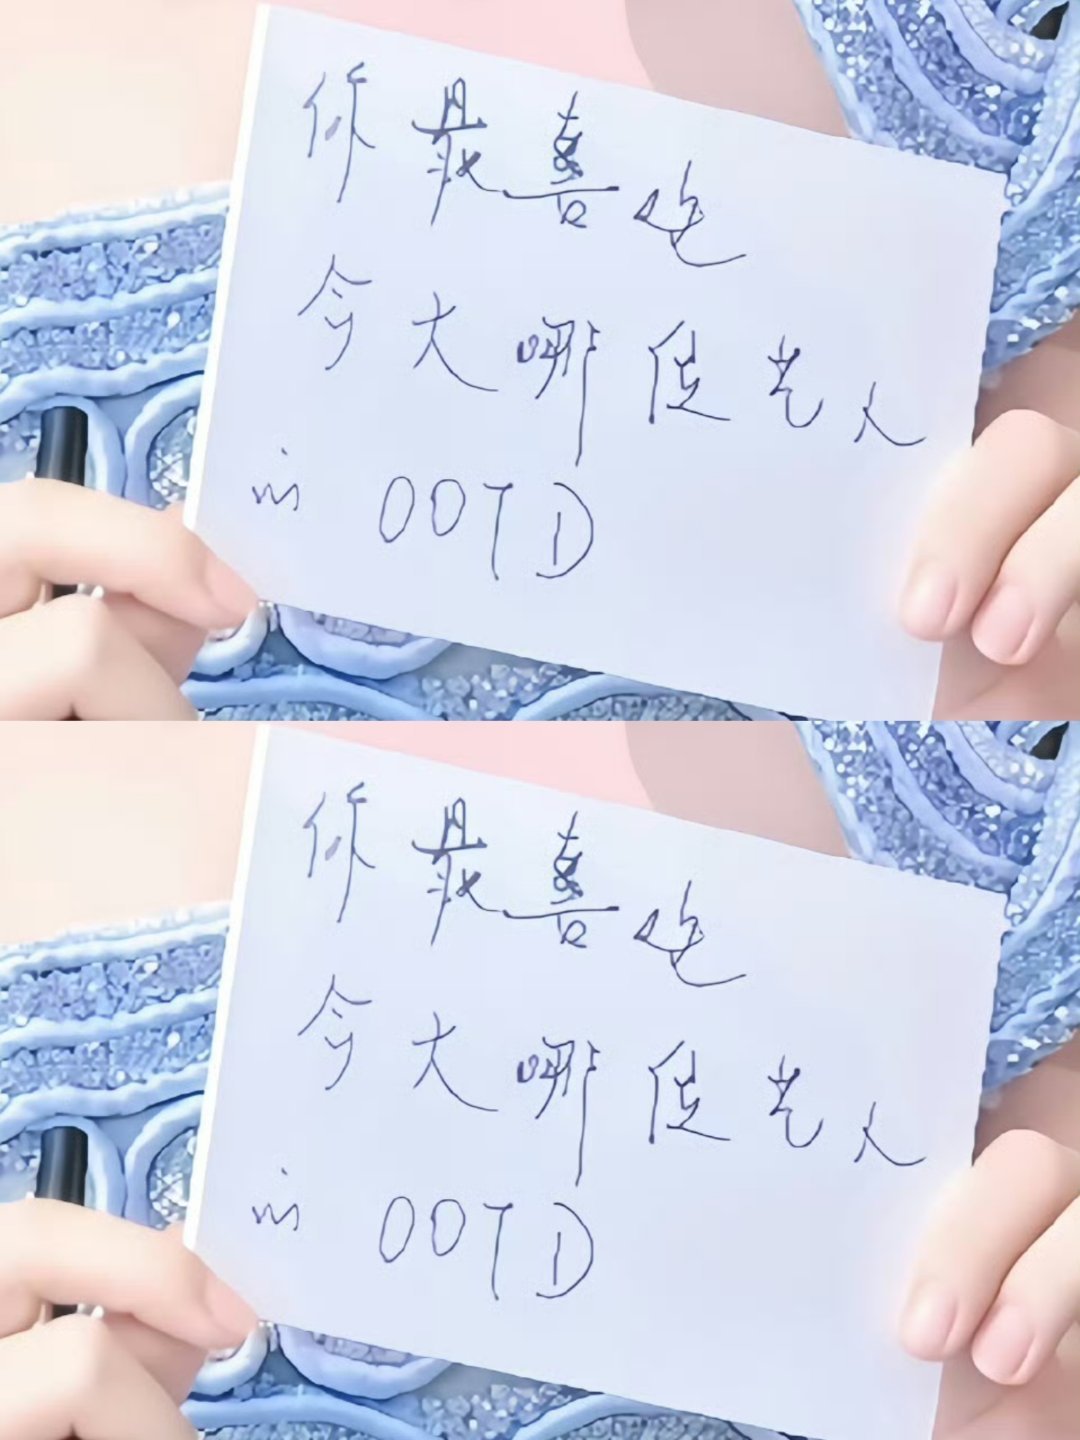 你最喜欢
今天哪位艺人
的 OOTD
你最喜欢
今天哪位艺人
的 OOTD